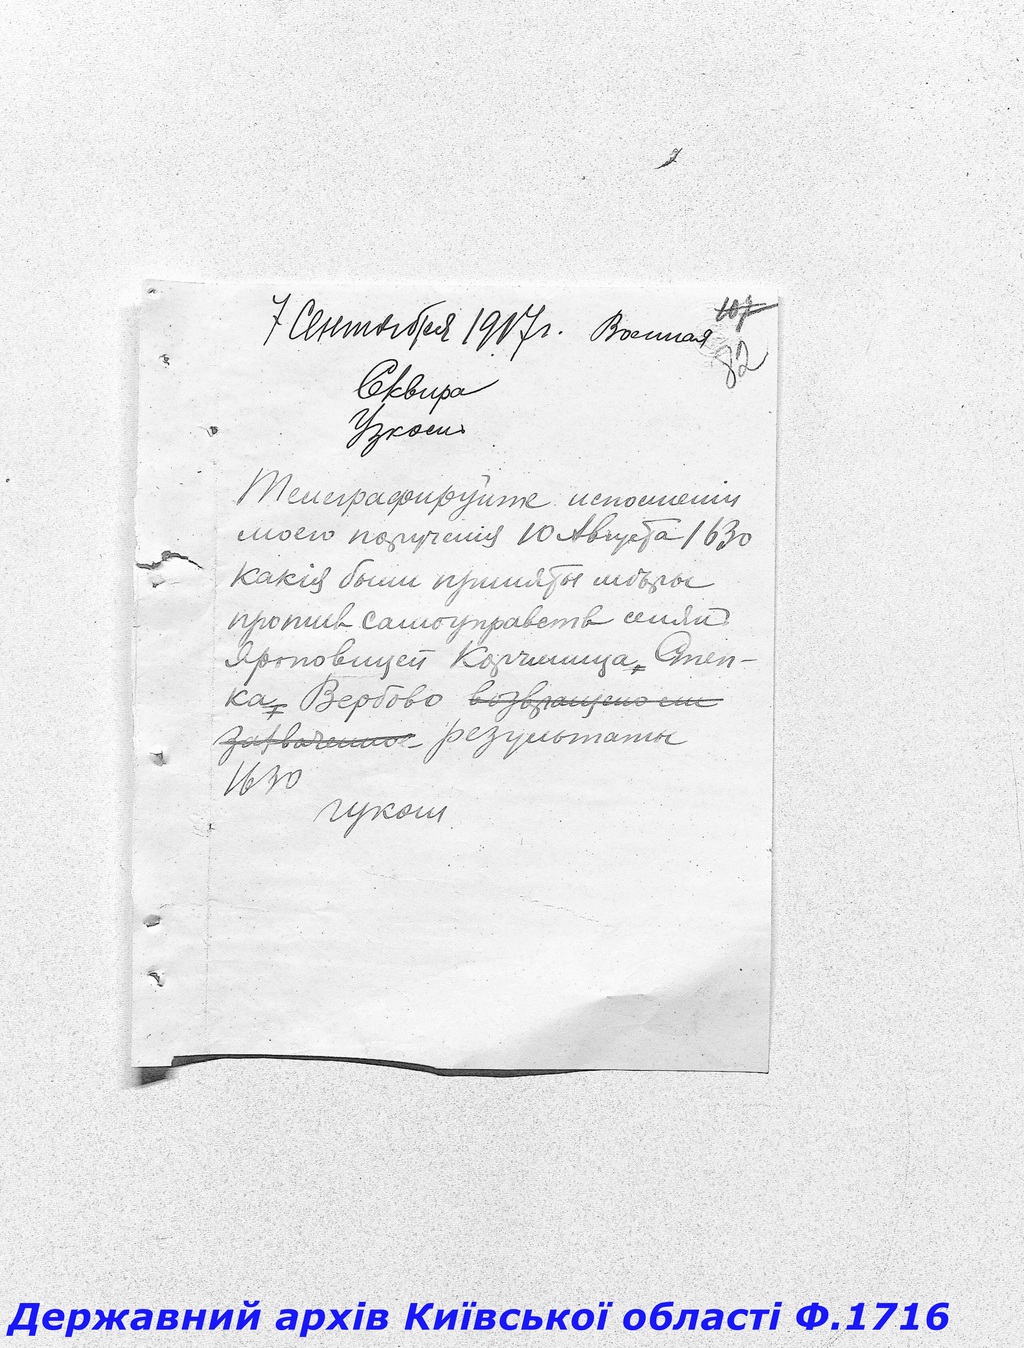 107
7 Сентября 1917 г. Военная
82
Сквира
Укоми
Телеграфируйте исполнении
моего порученія 10 Августа 1630
какія были приняты мѣры
против самоуправств селян
Яроповицей Корчмища, Степ-
ка, Вербово возвращено ли
захваченное результаты
1630
гукоми
Державний архів Київської області Ф.1716